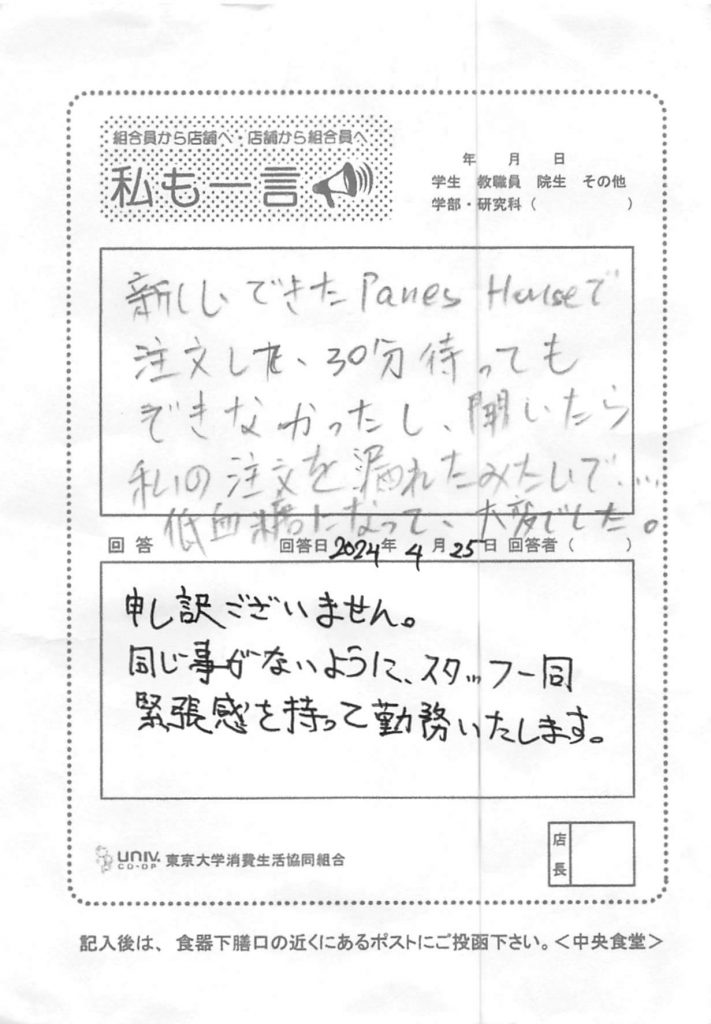 組合員から店舗へ・店舗から組合員へ
私も一言
年 月 日
学生 教職員 院生 その他
学部・研究科( )
新しいできた Panes Houseで
注文した、30分待っても
できなかったし、聞いたら
私の注文を漏れたみたいで…
低血糖になって、大変でした。
回答 回答日 2024年 4月 25日 回答者( )
申し訳ございません。
同じ事がないように、スタッフ一同
緊張感を持って勤務いたします。
店長
UNIV. CO-OP 東京大学消費生活協同組合
記入後は、食器下膳口の近くにあるポストにご投函下さい。<中央食堂>